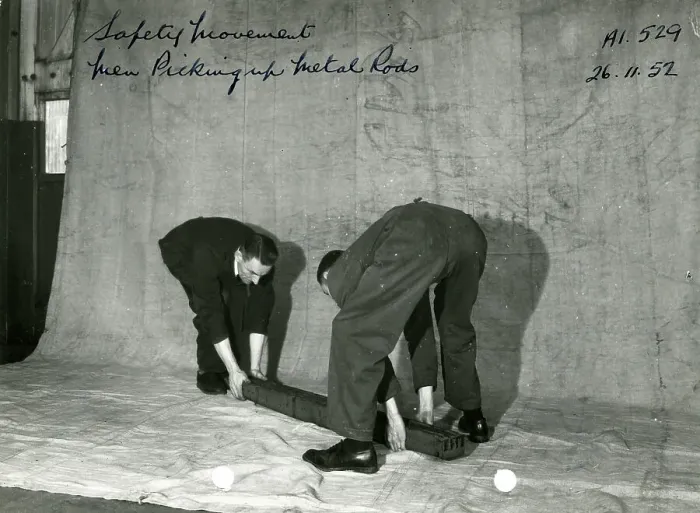 Safety Movement
Men Picking up Metal Rods
A1. 529
26.11.52